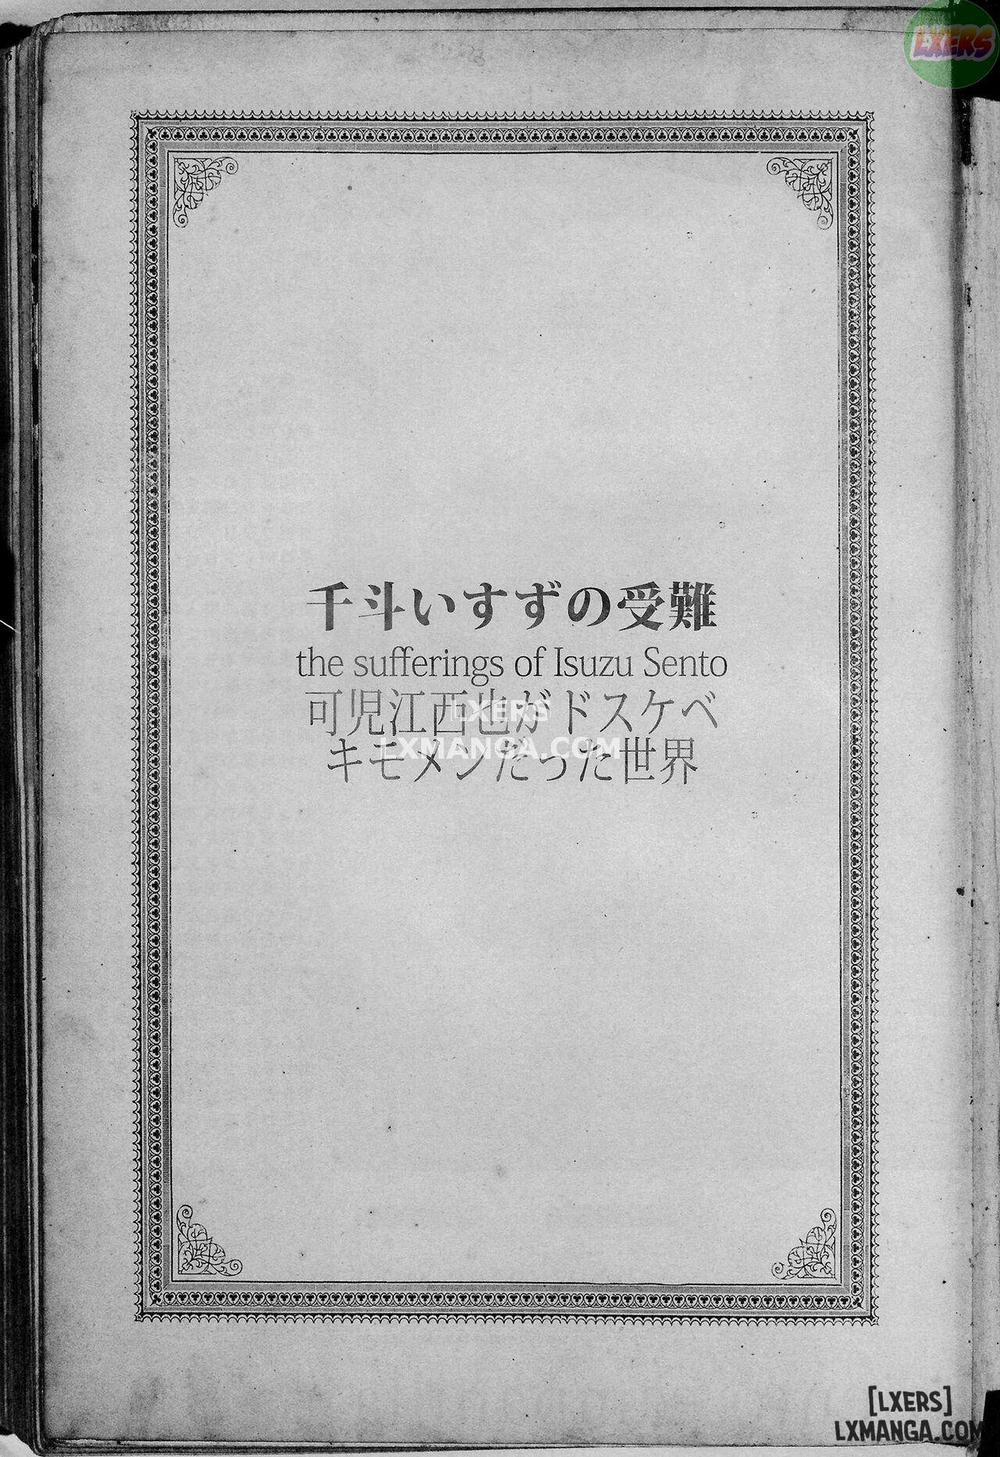 LXERS
千斗いすずの受難
the sufferings of Isuzu Sento
可児江西也がドスケベ
LXERS
LXMANGA.COM
キモメンだった世界
[LXERS]
LXMANGA.COM